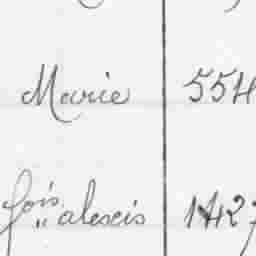 Marie 554
fois " alexis 1427